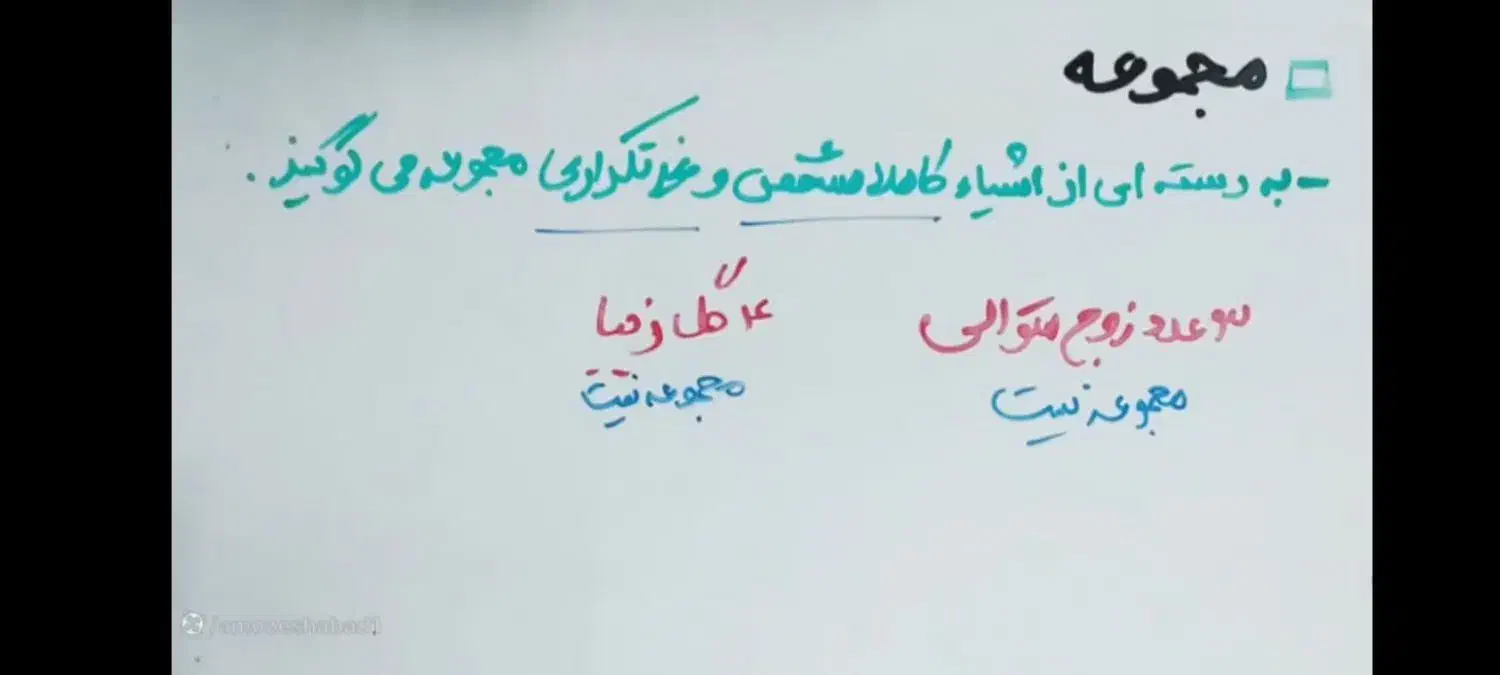 مجموعه
- به دسته ای از اشیاء کاملا مشخص و غیر تکراری مجموعه می گویند.
سه عدد زوج متوالی
۴ گل زیبا
مجموعه نیست
مجموعه نیست
/amozeshabad1